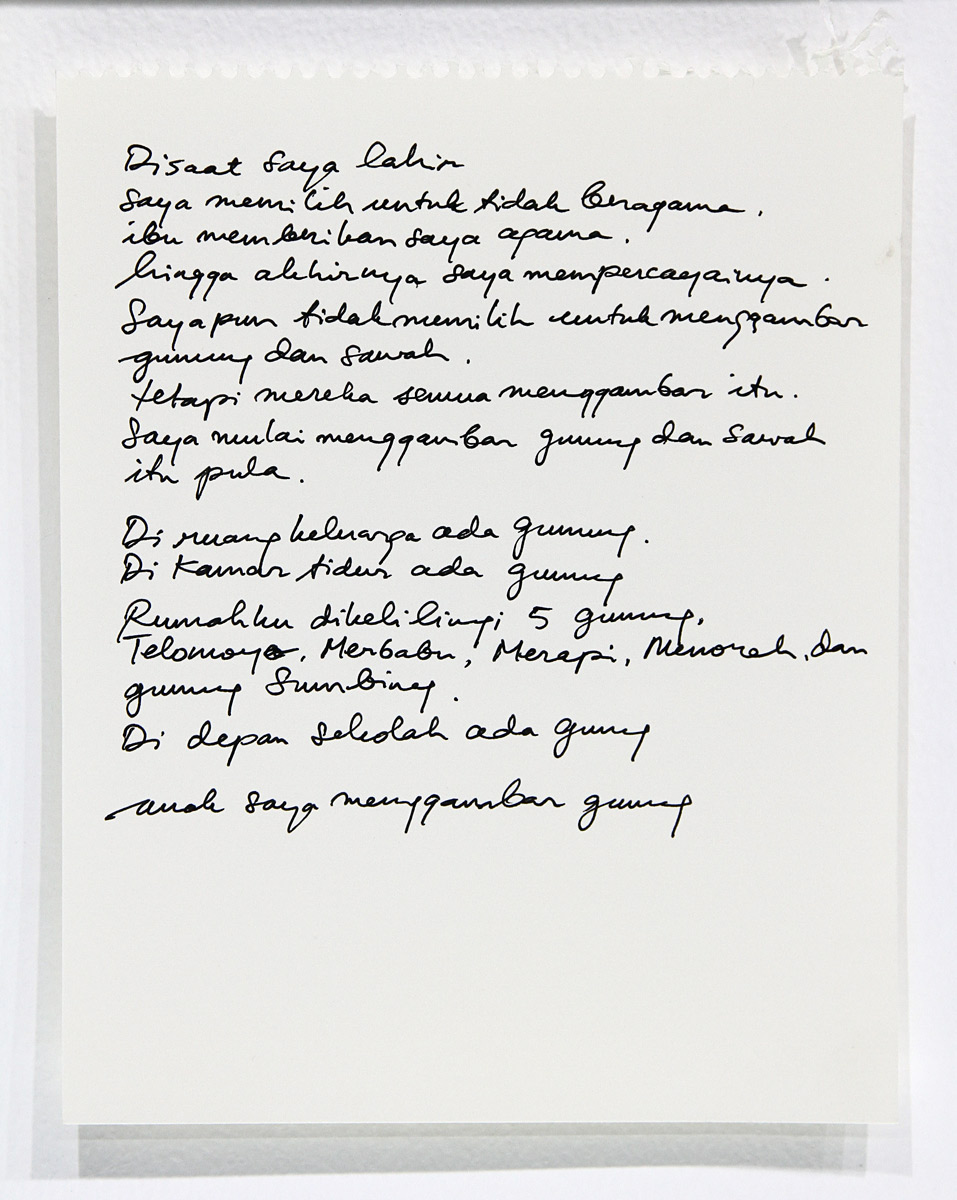 Disaat saya lahir
saya memilih untuk tidak beragama.
ibu memberikan saya agama.
hingga akhirnya saya mempercayainya.
Saya pun tidak memilih untuk menggambar
gunung dan sawah.
tetapi mereka semua menggambar itu.
Saya mulai menggambar gunung dan sawah
itu pula.
Di ruang keluarga ada gunung.
Di Kamar tidur ada gunung
Rumahku dikelilingi 5 gunung,
Telomoyo, Merbabu, Merapi, Menoreh, dan
gunung Sumbing.
Di depan sekolah ada gunung
anak saya menggambar gunung